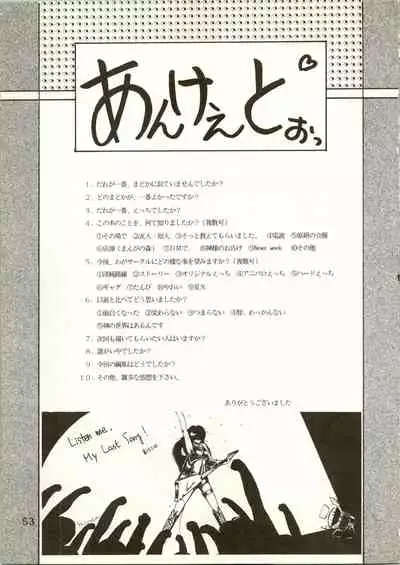 あんけえとぉっ
1．だれが一番、まどかに似ていませんでしたか？
2．どのまどかが、一番よかったですか？
3．だれが一番、えっちでしたか？
4．この本のことを、何で知りましたか？（複数可）
①その場で ②友人・知人 ③そっと教えてもらいました。 ④電波
⑥店頭（まんがの森） ⑦ＤＭで。 ⑧神様のお告げ ⑨Sweet week ⑩その他
5．今後、わがサークルにどの様な事を望みますか？（複数可）
②ストーリー ③オリジナルえっち ④アニパロえっち ⑤ハードえっち
⑥ギャグ ⑦たんび ⑧やおい
6．以前と比べてどう思いましたか？
①面白くなった ②変わらない ③つまらない ④怪、わっかんない
⑤神の世界はあるんです
7．次回も描いてもらいたい人はいますか？
8．誰がいやでしたか？
9．今回の編集はどうでしたか？
10．その他、雑多な感想を下さい。
ありがとうございました
Listen me.
My Last Song!
53